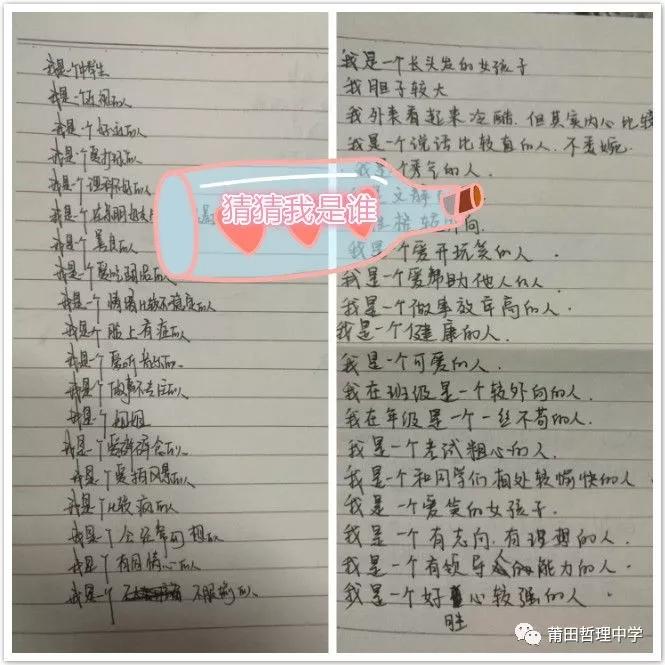 我是一个中学生
我是一个近视的人
我是一个好动的人
我是一个爱打球的人
我是一个理科不好的人
我是一个
我是一个善良的人
我是一个爱吃甜品的人
我是一个情绪比较不稳定的人
我是一个脸上有痘的人
我是一个爱听
我是一个做事不专注的人
我是一个姐姐
我是一个爱碎碎念的人
我是一个爱拍风景的人
我是一个比较疯的人
我是一个会经常幻想的人
我是一个有同情心的人
我是一个不服输的人
猜猜我是谁
我是一个长头发的女孩子
我胆子较大
我外表看起来冷酷，但其实内心比较
我是一个说话比较直的人，不委婉.
我是个秀气的人.
文静
性格较 向
我是个爱开玩笑的人.
我是一个爱帮助他人的人.
我是一个做事效率高的人.
我是一个健康的人.
我是一个可爱的人.
我在班级是一个较外向的人.
我在年级是一个一丝不苟的人.
我是一个考试粗心的人
我是一个和同学们相处较愉快的人.
我是一个爱笑的女孩子.
我是一个有志向，有理想的人.
我是一个有领导能力的人.
我是一个好胜心较强的人.
莆田哲理中学